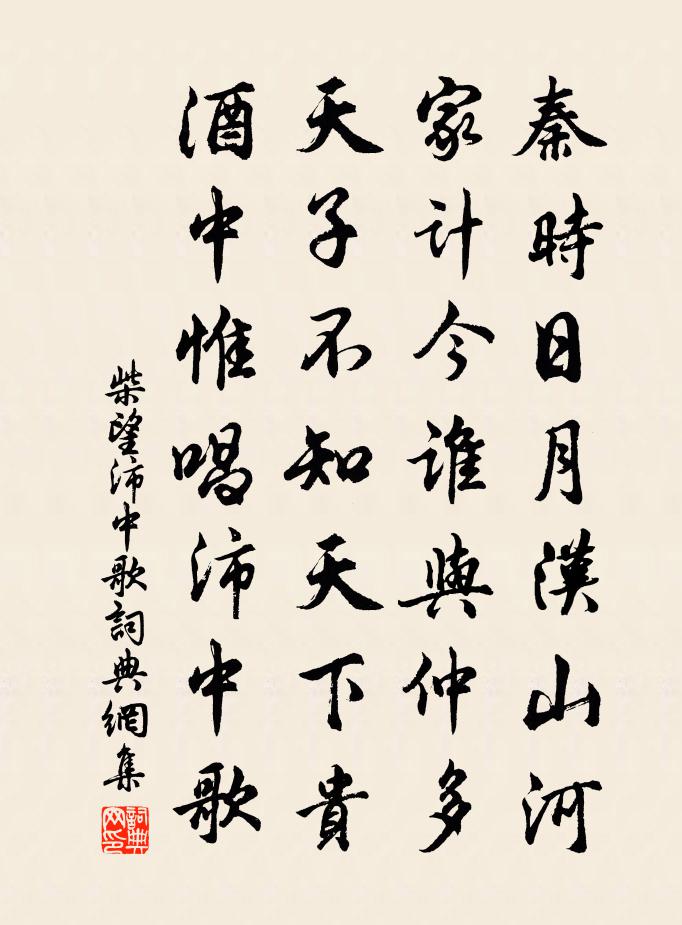 秦時日月漢山河
家計今誰與仲多
天子不知天下貴
酒中惟唱沛中歌
柴望沛中歌詞典網集
詞典網印